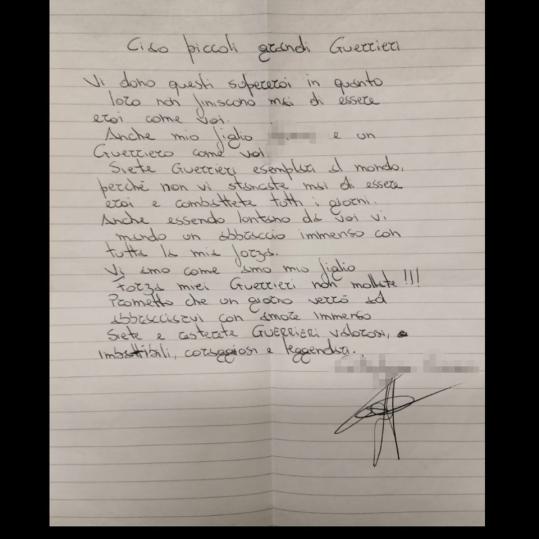 Ciao piccoli grandi Guerrieri
Vi dono questi supereroi in quanto
loro non finiscono mai di essere
eroi come voi.
Anche mio figlio e un
Guerriero come voi.
Siete Guerrieri esemplari al mondo,
perché non vi stancate mai di essere
eroi e combattete tutti i giorni.
Anche essendo lontano da voi vi
mando un abbraccio immenso con
tutta la mia forza.
Vi amo come amo mio figlio
Forza miei Guerrieri non mollate !!!
Prometto che un giorno verrò ad
abbracciarvi con amore immenso
Siete e resterete GUERRIERI valorosi,
imbattibili, coraggiosi e leggendari.